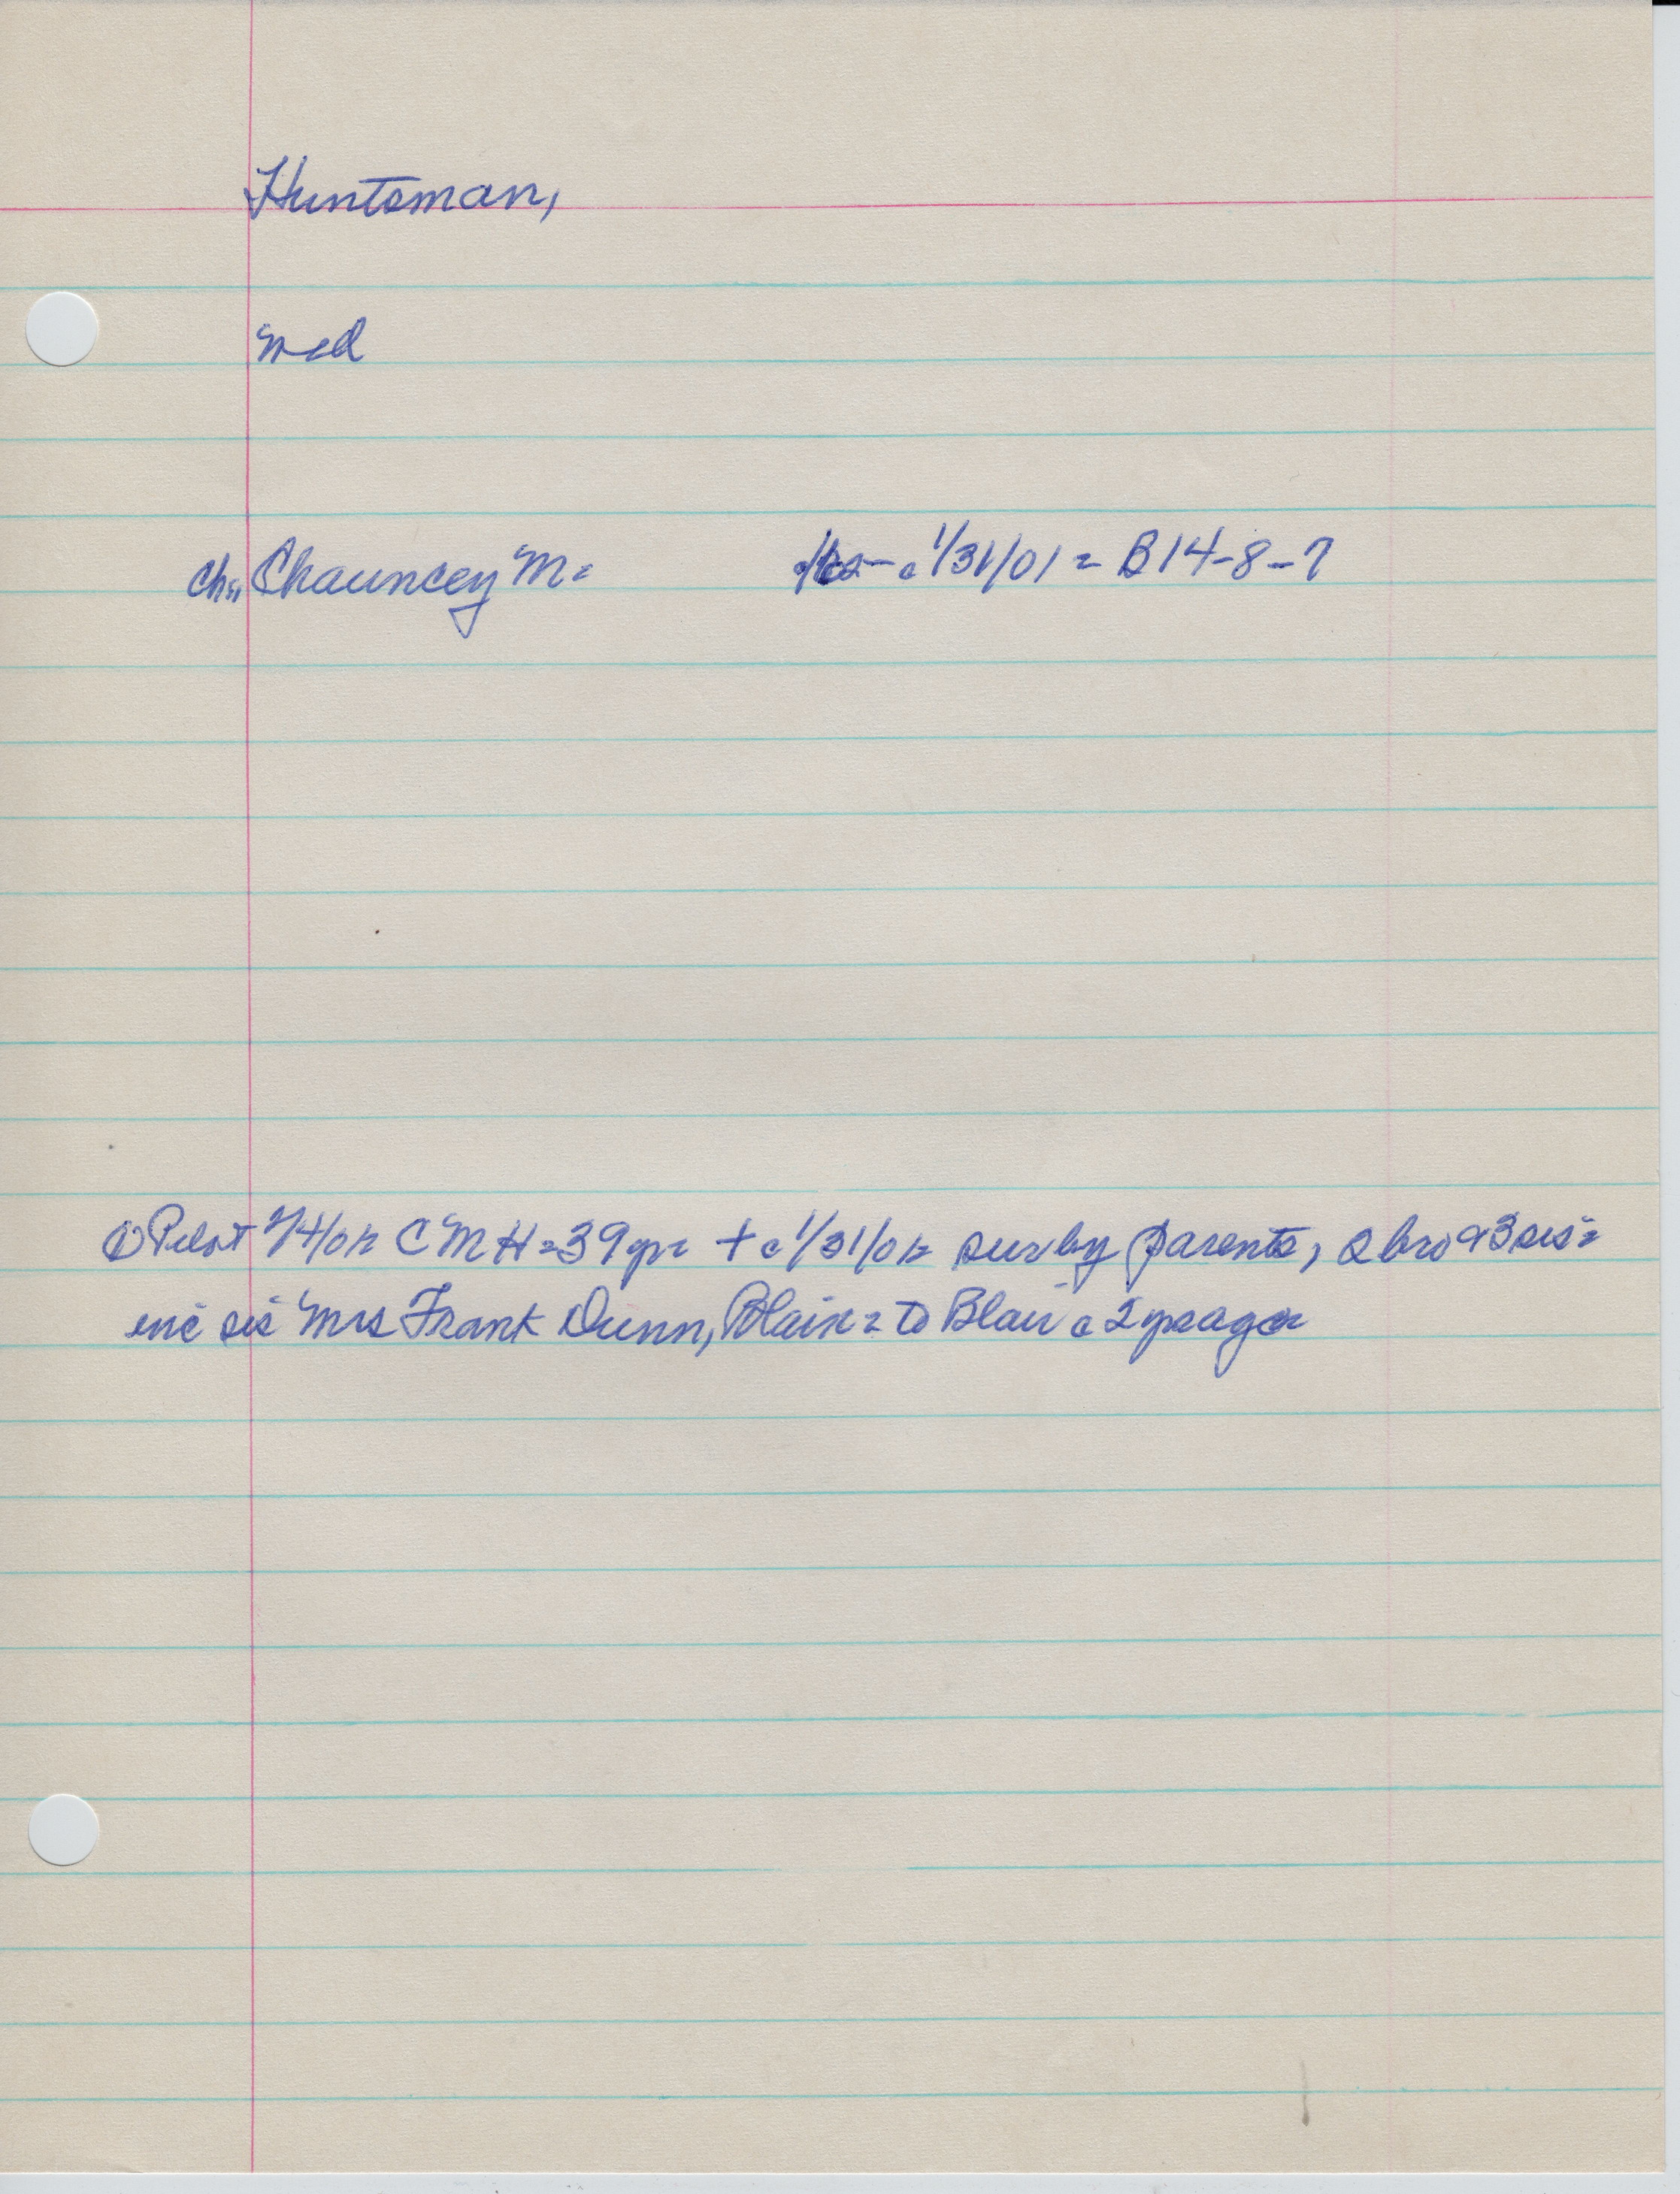 Huntsman,
med
ch= Chauncey M= c 1/31/01 = B14-8-7
① Pilot 2/4/01= CMH=39yr= + c 1/31/01= sur by parents, 2 bro & 3 sis=
inc sis Mrs Frank Dunn, Blair= to Blair c 2 yrs ago=